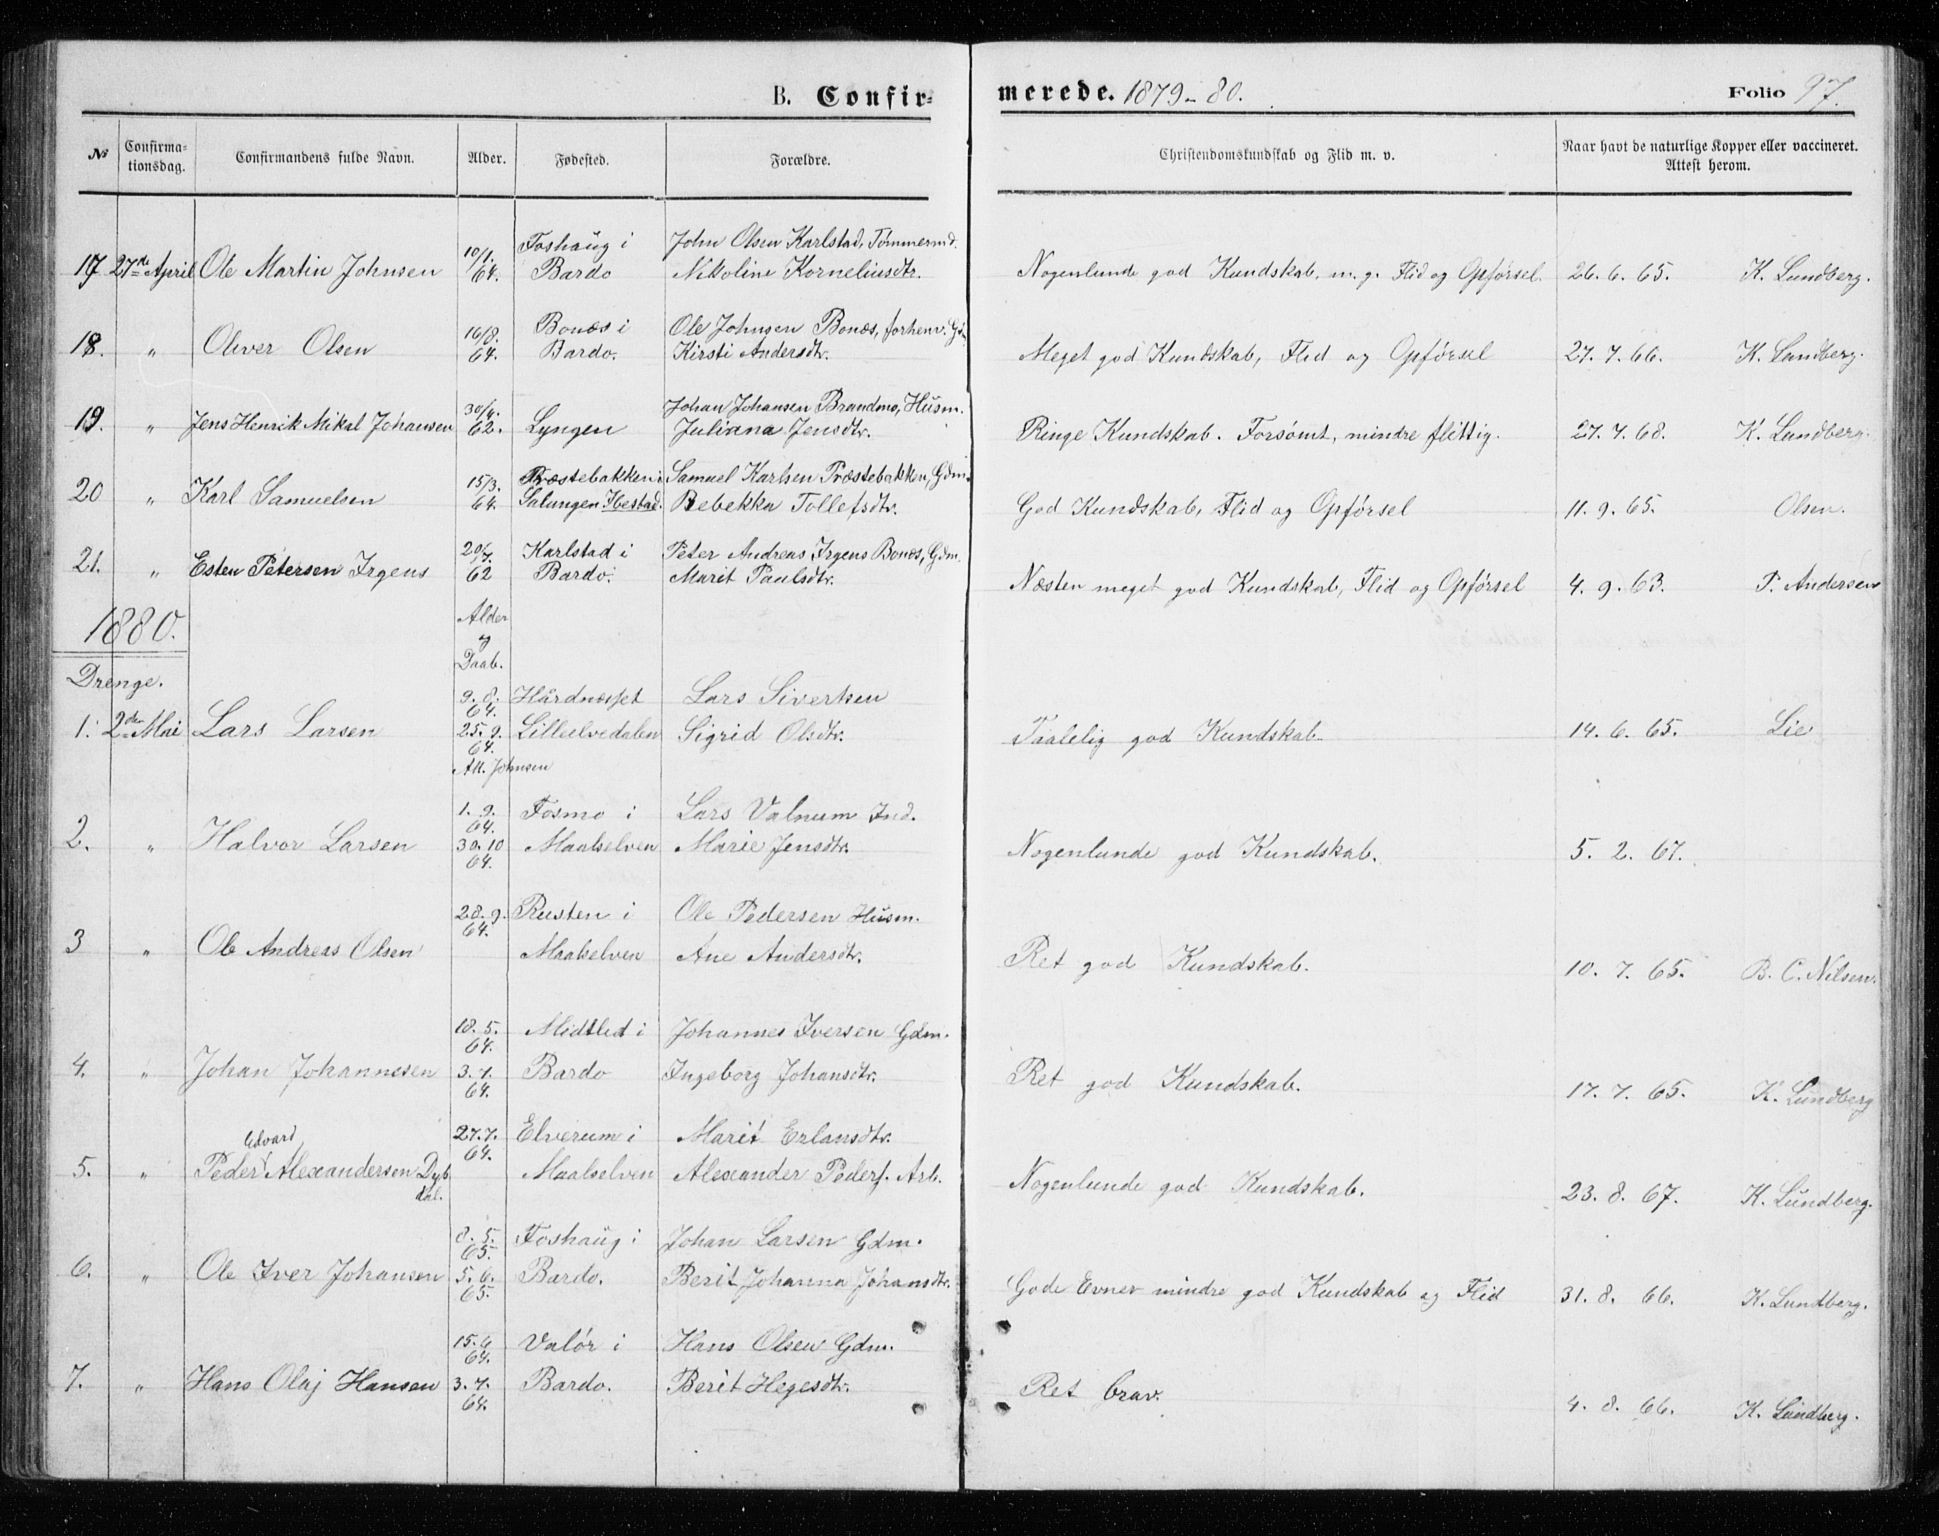 B. Confirmerede. 1879-80. Folio 97.
No Confirmationsdag. Confirmandens fulde Navn. Alder. Fødested. Forældre. Christendomskundskab og Flid m. v. Naar havt de naturlige Kopper eller vaccineret. Attest herom.
10/1. Foshaug i John Olsen Karlstad, Tømmermd.
17 27de April Ole Martin Johnsen 64. Bardo Nikoline Korneliusdtr. Nogenlunde god Kundskab, m. g. Flid og Opførsel. 26. 6. 65. K. Lundberg.
16/8. Bonæs i Ole Johnsen Bonæs, forhenv. Gdm
18. " Oliver Olsen 64. Bardo. Kirsti Andersdtr. Meget god Kundskab, Flid og Opførsel 27. 7. 66. K. Lundberg.
30/4. Johan Johansen Brandmo, Husm.
19. " Jens Henrik Mikal Johansen 62. Lyngen Julianna Jensdtr. Ringe Kundskab. Forsømt, mindre flittig. 27. 7. 68. K. Lundberg.
15/3. Præstebakken i Samuel Karlsen Præstebakken, Gdm.
20 " Karl Samuelsen 64. Salangen Ibestad. Rebekka Tollefsdtr. God Kundskab, Flid og Opførsel 11. 9. 65. Olsen.
20/7. Karlstad i Peter Andreas Irgens Bonæs, Gdm.
21. " Esten Petersen Irgens 62 Bardo. Marit Paulsdtr. Næsten meget god Kundskab, Flid og Opførsel 4. 9. 63. P. Andersen
1880. Alder
og
Daab.
Drenge.
9. 8. 64. Hårdnæsset Lars Sivertsen
1. 2den Mai Lars Larsen 25. 9. 64. Lilleelvedalen Sigrid Olsdtr. Taalelig god Kundskab. 14. 6. 65. Lie
Att. Johnsen
1. 9. 64. Fosmo i Lars Valnum Ind.
2. " Halvor Larsen 30. 10 64. Maalselven Marie Jensdtr. Nogenlunde god Kundskab. 5. 2. 67.
28. 9. 64. Rusten i Ole Pedersen Husm.
3 " Ole Andreas Olsen Maalselven Ane Andersdtr. Ret god Kundskab. 10. 7. 65. B. C. Nilsen.
18. 5. 64. Midtlid i Johannes Iversen Gdm.
4. " Johan Johannesen 3. 7. 64. Bardo Ingeborg Johansdtr. Ret god Kundskab. 17. 7. 65. K. Lundberg
Edvard 27. 7. 64. Elverum i Marit Erlansdtr.
5. " Peder Alexandersen Dybdal. Maalselven Alexander Peders. Arb. Nogenlunde god Kundskab. 23. 8. 67. K. Lundberg.
8. 5. 65. Foshaug i Johan Larsen Gdm.
6. " Ole Iver Johansen 5. 6. 65. Bardo. Berit Johanna Johansdtr. Gode Evner mindre god Kundskab og Flid 31. 8. 66. K. Lundberg.
15. 6 64. Valør i Hans Olsen Gdm.
7. " Hans Olaj Hansen 3. 7. 64. Bardo. Berit Hegesdtr. Ret brav. 4. 8. 66. K. Lundberg.